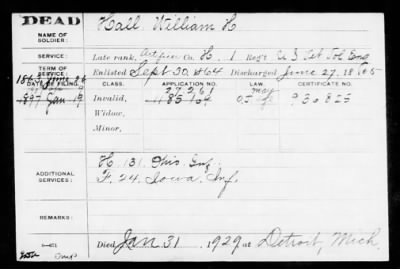 DEAD
NAME OF SOLDIER:
Hall William H
SERVICE:
Late rank, Artificer Co. H, 1 Reg't U S Vet Vol Eng
TERM OF SERVICE:
Enlisted Sept 30, 1864 Discharged June 27, 1865
DATE OF FILING.
CLASS.
APPLICATION NO.
LAW.
CERTIFICATE NO.
1897 Jan 19
Invalid,
1185169
May
936825
Widow,
Minor,
ADDITIONAL SERVICES:
H 131 Ohio Inf.
F. 24. Iowa Inf.
REMARKS:
Died Jan 31, 1929 at Detroit, Mich.